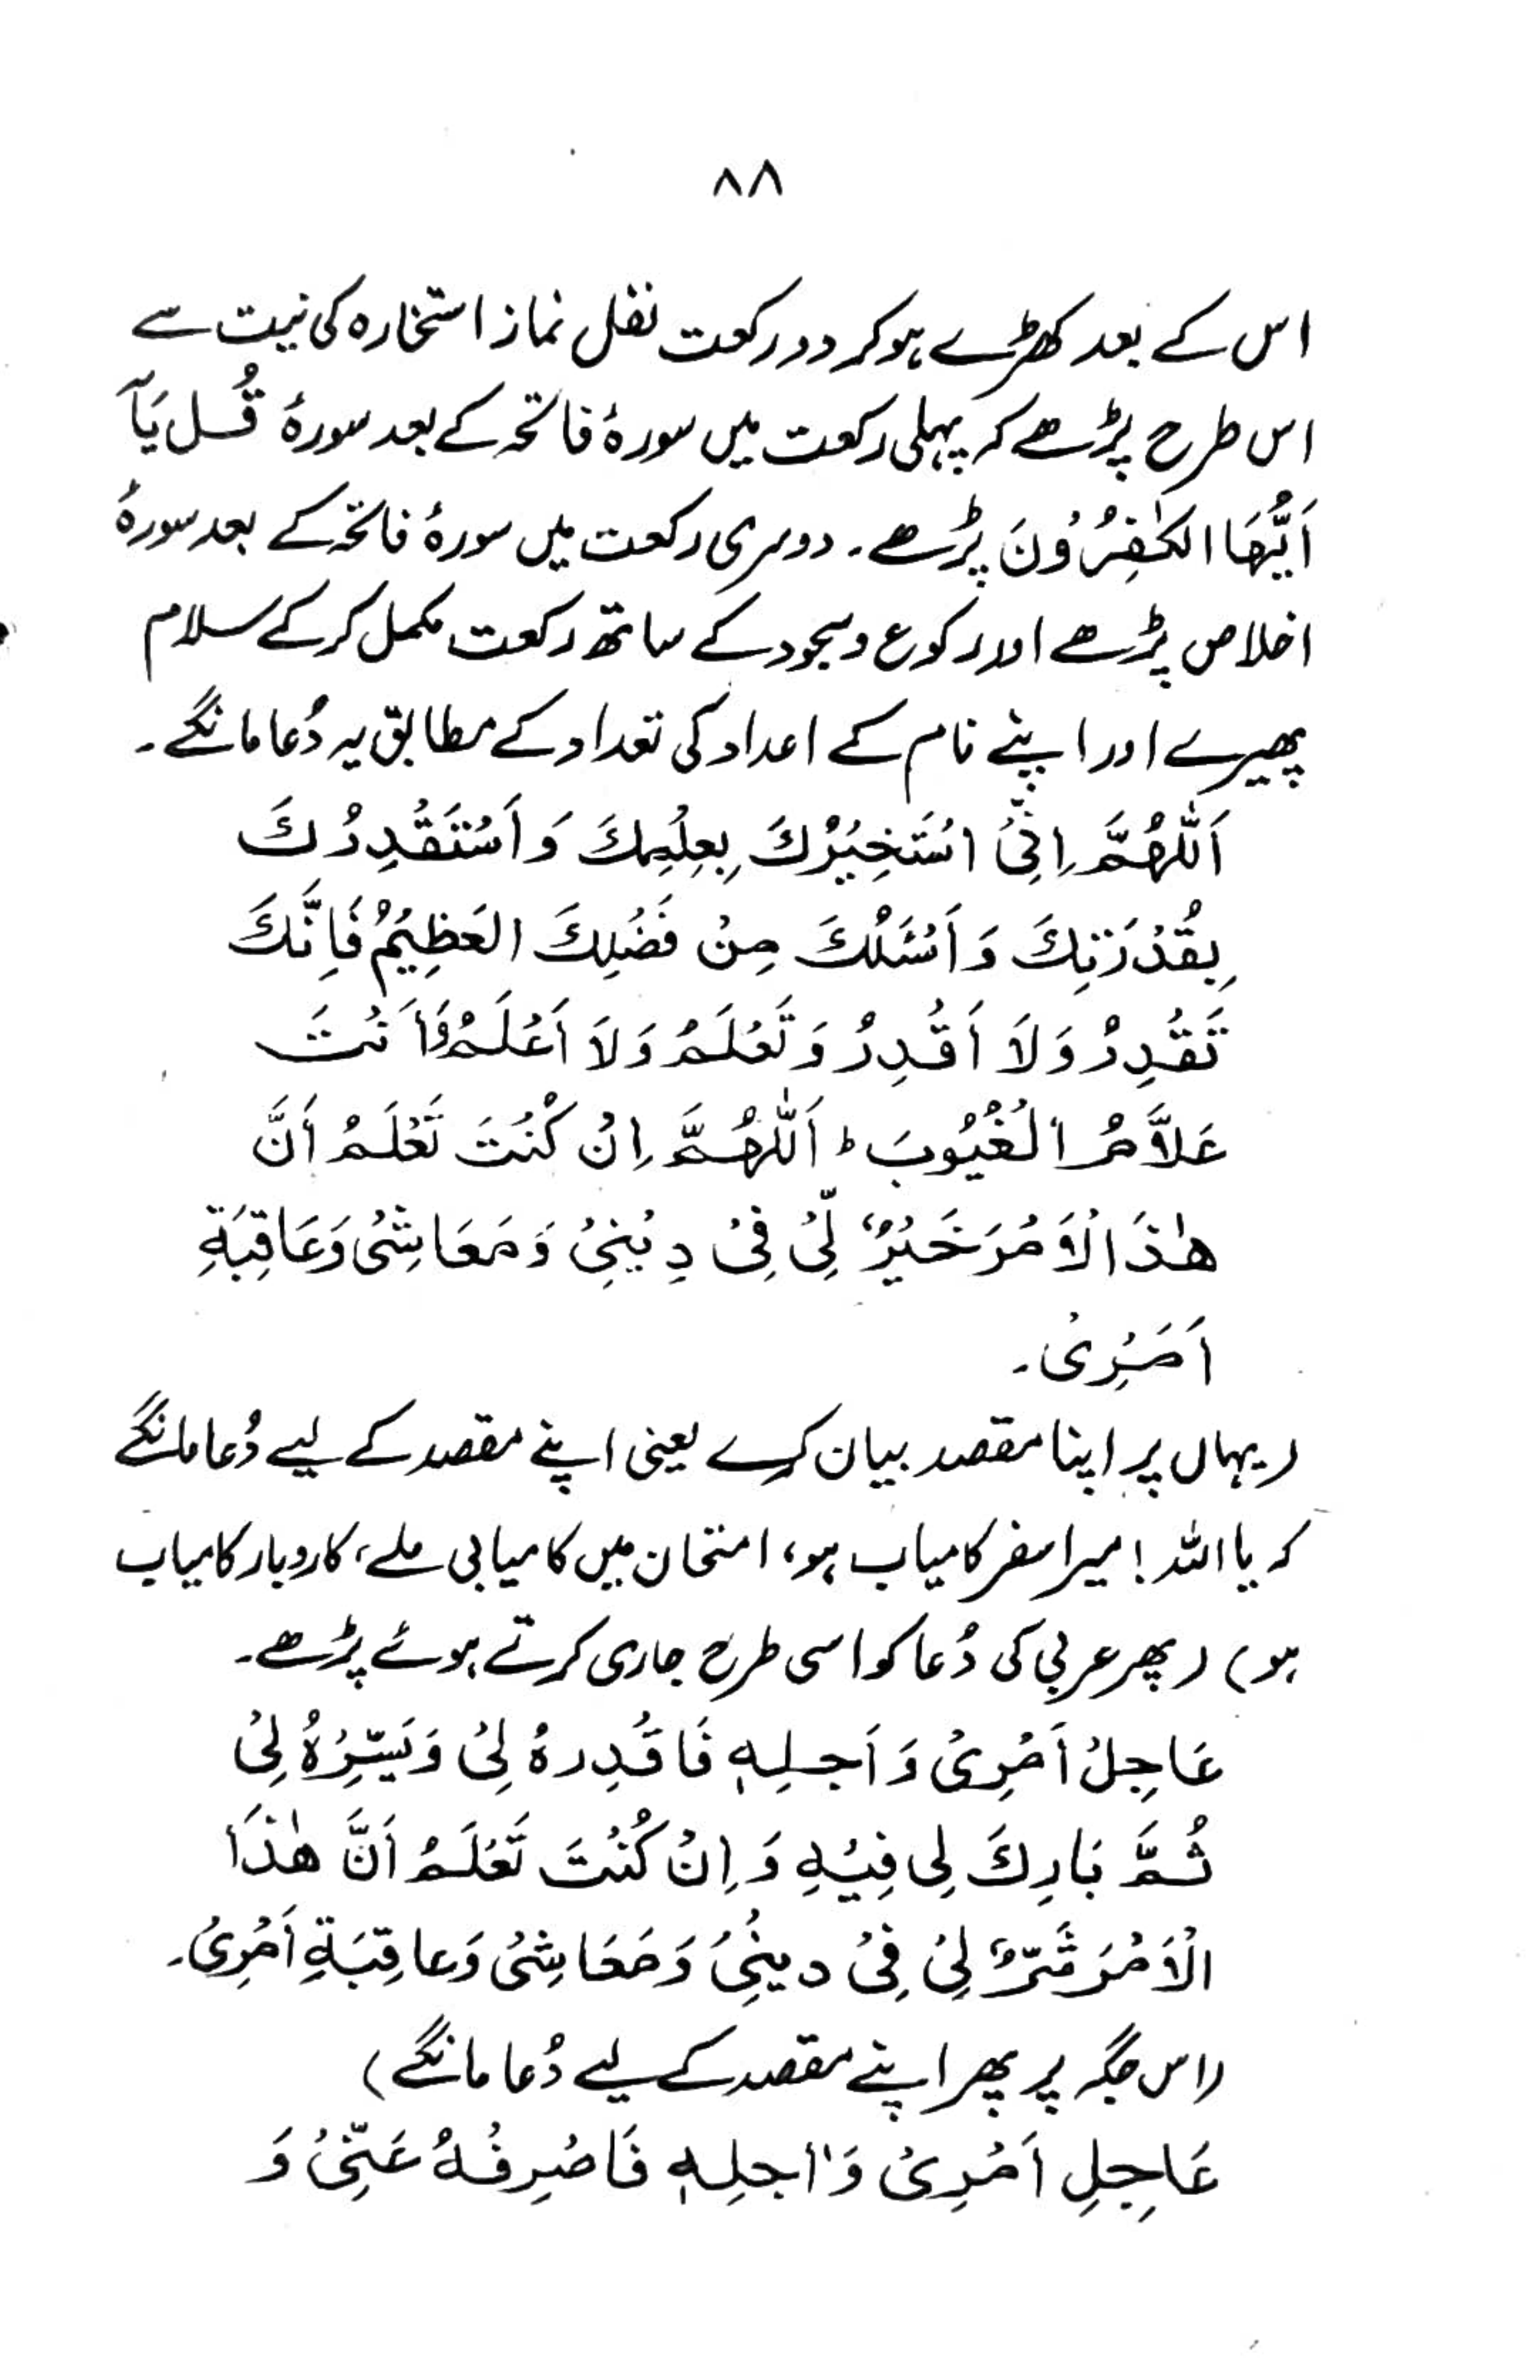 ۸۸
اس کے بعد کھڑے ہوکر دو رکعت نفل نماز استخارہ کی نیت سے
اس طرح پڑھے کہ پہلی رکعت میں سورۂ فاتحہ کے بعد سورۂ قُل یَاَ
اَیُّہَا الکٰفِرُوْنَ پڑھے۔ دوسری رکعت میں سورۂ فاتحہ کے بعد سورۂ
اخلاص پڑھے اور رکوع و سجود کے ساتھ رکعت مکمل کر کے سلام
پھیرے اور اپنے نام کے اعداد کی تعداد کے مطابق یہ دُعا مانگے۔
اَللّٰهُمَّ اِنِّیْ اسْتَخِیْرُكَ بِعِلْمِكَ وَ اَسْتَقْدِرُكَ
بِقُدْرَتِكَ وَ اَسْئَلُكَ مِنْ فَضْلِكَ العَظِیْمُ فَاِنَّكَ
تَقْدِرُ وَلَا اَقْدِرُ وَ تَعْلَمُ وَلَا اَعْلَمُ وَاَنْتَ
عَلَّامُ الْغُیُوبَ ؕ اَللّٰهُمَّ اِنْ کْنْتَ تَعْلَمُ اَنَّ
هٰذَا الْاَمْرَ خَیْرٌ لِّیْ فِیْ دِیْنِیْ وَ مَعَاشِیْ وَعَاقِبَةِ
اَمَرِیْ۔
(یہاں پر اپنا مقصد بیان کرے یعنی اپنے مقصد کے لیے دُعا مانگے
کہ یا اللہ! میرا سفر کامیاب ہو، امتحان میں کامیابی ملے، کاروبار کامیاب
ہو) (پھر عربی کی دُعا کو اسی طرح جاری کرتے ہوئے پڑھے۔
عَاجِلْ اَمْرِیْ وَ اَجِلِهٖ فَاقْدِرہُ لِیْ وَیَسِّرْهُ لِیْ
ثُمَّ بَارِكَ لِی فِیْهِ وَ اِنْ کُنْتَ تَعْلَمُ اَنَّ هٰذَا
الْاَمْرَ شَرٌّ لِیْ فِیْ دیْنِیْ وَ مَعَاشِیْ وَعاقِبَةِ اَمْرِیْ۔
(اس جگہ پر پھر اپنے مقصد کے لیے دُعا مانگے)
عَاجِلِ اَمْرِیْ وَاٰجِلِهٖ فَاصْرِفْهُ عَنِّیْ وَ